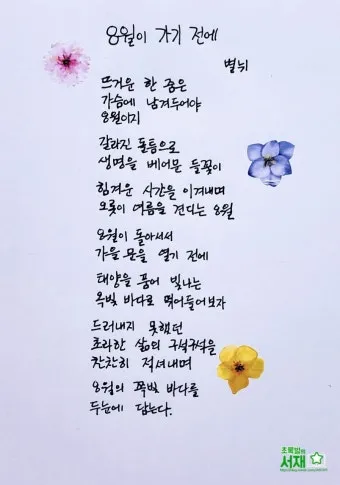 8월이 가기 전에
별뉘
뜨거운 한 줌은
가슴에 남겨두어야
8월이지
갈라진 돌틈으로
생명을 베어문 들꽃이
힘겨운 시간을 이겨내며
오롯이 여름을 견디는 8월
8월이 돌아서서
가을 문을 열기 전에
태양을 품어 빛나는
옥빛 바다로 뛰어들어보자
드러내지 못했던
초라한 삶의 구석구석을
찬찬히 적셔내며
8월의 쪽빛 바다를
두눈에 담는다.
초록별의
서재